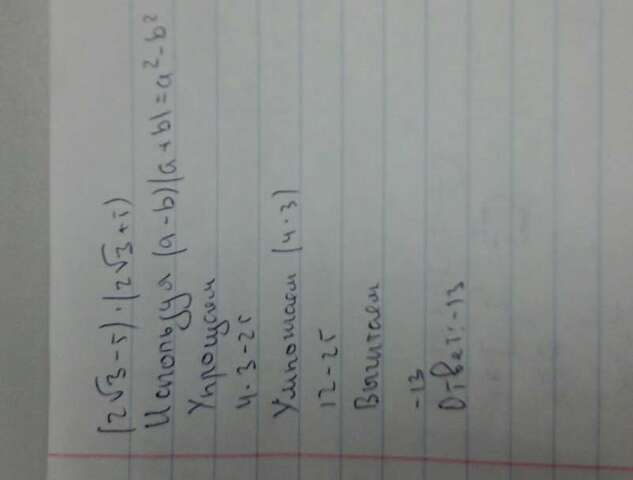 (2√3-5)·(2√3+5)
Используя (a-b)(a+b)=a²-b²
Упрощаем
4·3-25
Умножаем (4·3)
12-25
Вычитаем
-13
Ответ:-13